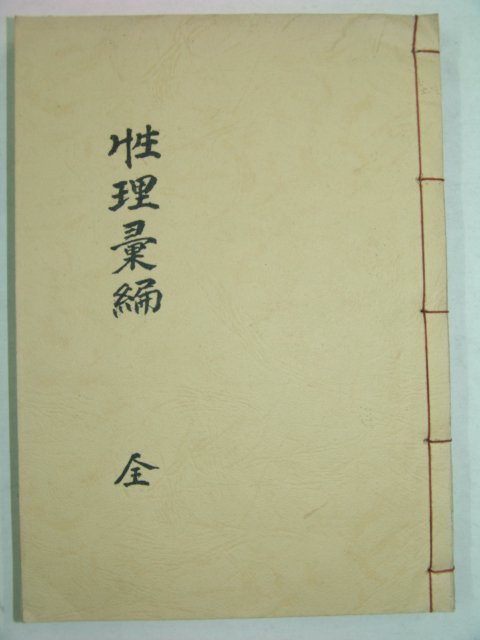 性理彙編
全